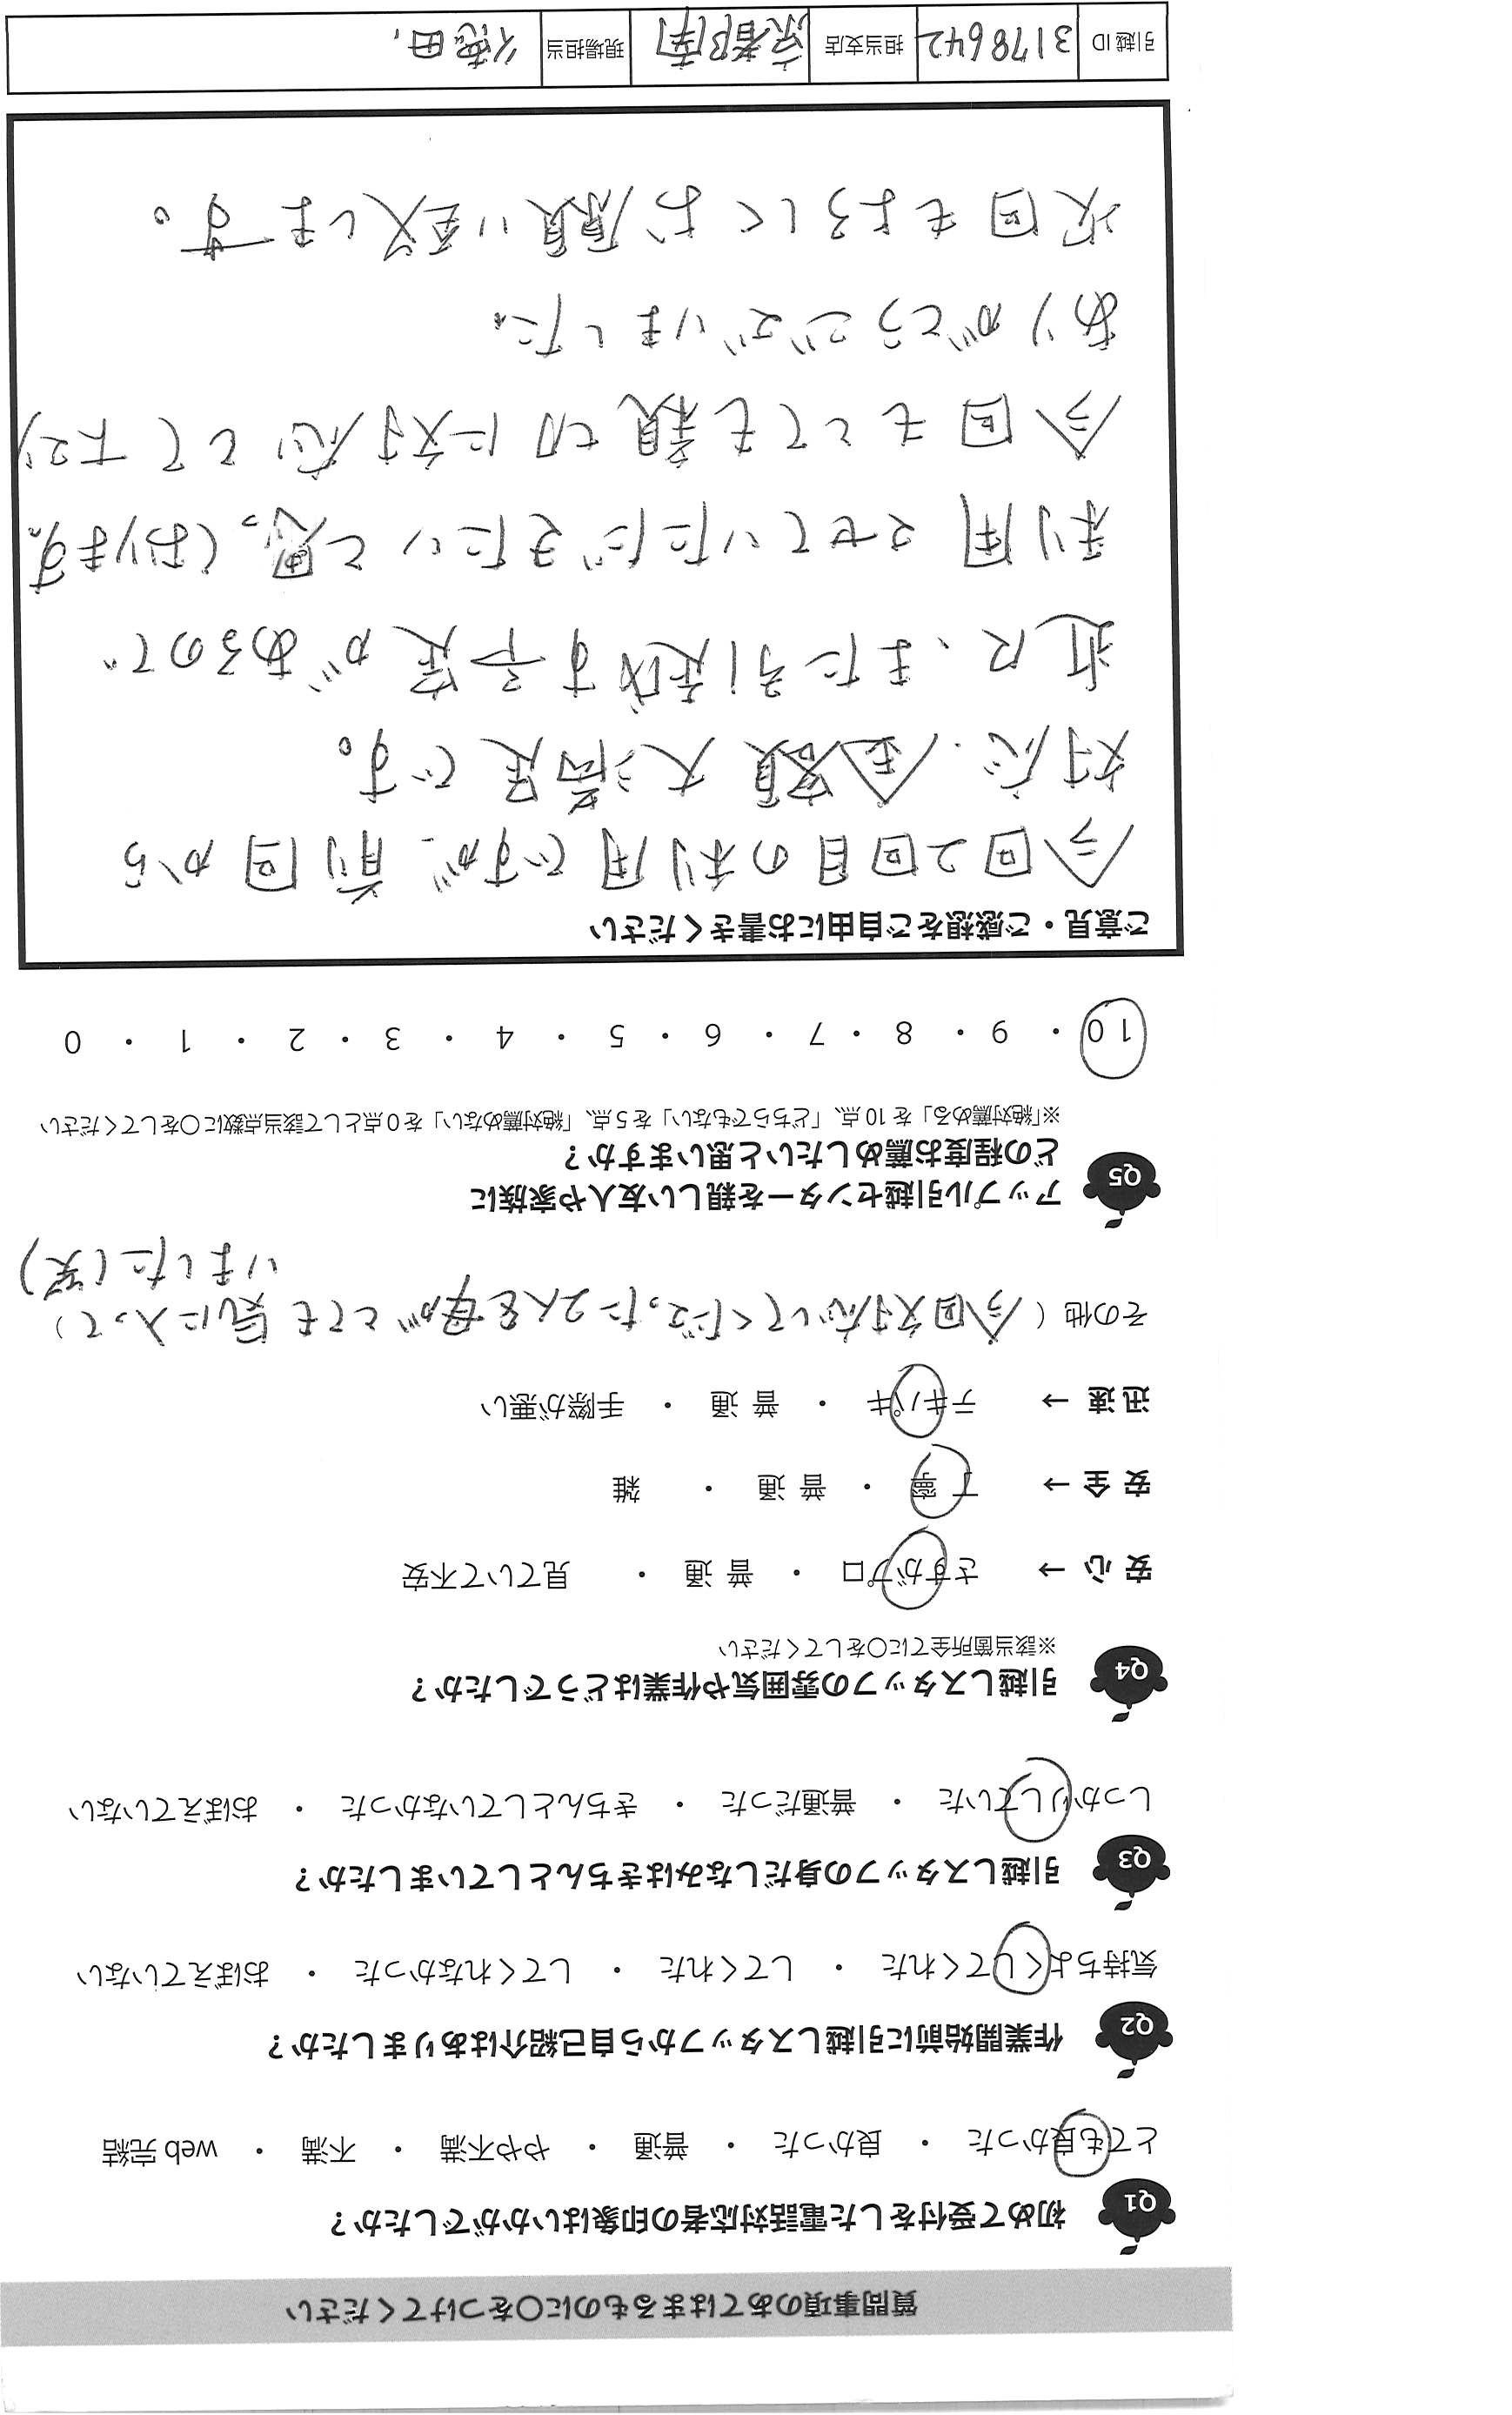 質問事項のあてはまるものに〇をつけてください
Q1 初めて受付をした電話対応者の印象はいかがでしたか？
とても良かった ・ 良かった ・ 普通 ・ やや不満 ・ 不満 ・ web 完結
Q2 作業開始前に引越しスタッフから自己紹介はありましたか？
気持ちよくしてくれた ・ してくれた ・ してくれなかった ・ おぼえていない
Q3 引越しスタッフの身だしなみはきちんとしていましたか？
しっかりしていた ・ 普通だった ・ きちんとしていなかった ・ おぼえていない
Q4 引越しスタッフの雰囲気や作業はどうでしたか？
※該当箇所全てに〇をしてください
安心 → さすがプロ ・ 普通 ・ 見ていて不安
安全 → 丁寧 ・ 普通 ・ 雑
迅速 → テキパキ ・ 普通 ・ 手際が悪い
その他（今回対応してくださった2人を母がとても気に入って）
いました(笑)
Q5 アップル引越センターを親しい友人や家族に
どの程度お薦めしたいと思いますか？
※「絶対薦める」を10点、「どちらでもない」を5点、「絶対薦めない」を0点として該当点数に〇をしてください
10 ・ 9 ・ 8 ・ 7 ・ 6 ・ 5 ・ 4 ・ 3 ・ 2 ・ 1 ・ 0
ご意見・ご感想をご自由にお書きください
今回2回目の利用ですが、前回から
対応、金額大満足です。
近々、また引越す予定があるので
利用させていただきたいと思っております。
今回もとても親切に対応して下さり
ありがとうございました。
次回もよろしくお願い致します。
引越ID 3178642 担当支店 京都南 現場担当 徳田